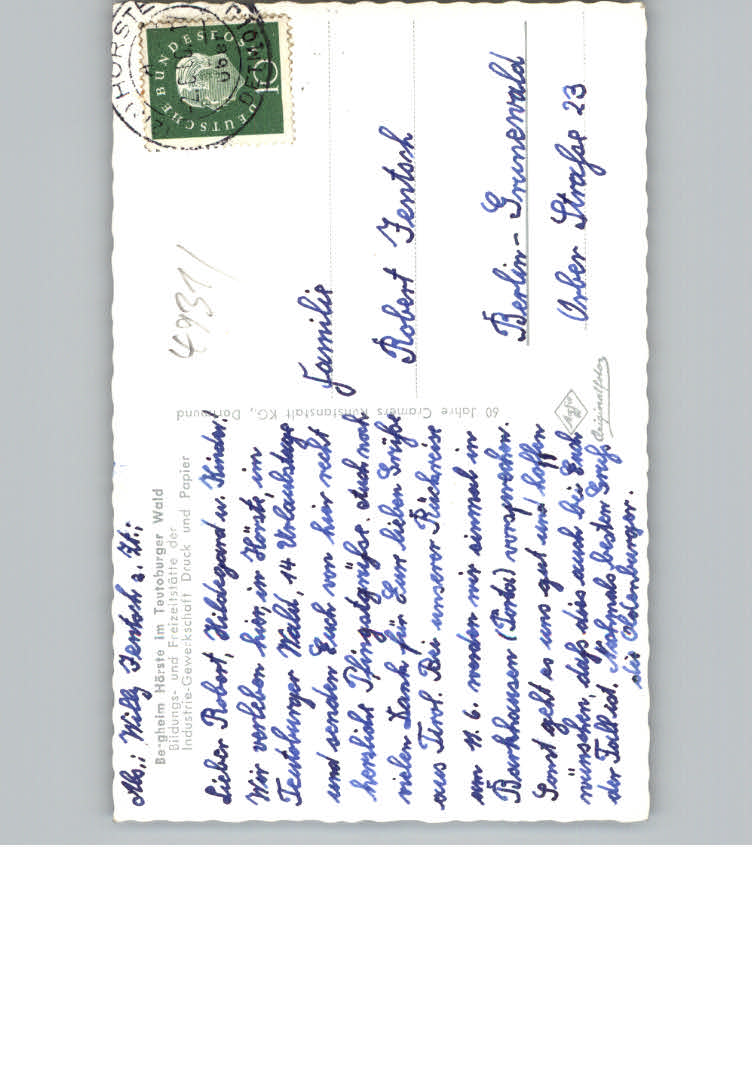 Abs.: Willy Jentsch z. Zt.:
Bergheim Hörste im Teutoburger Wald
Bildungs- und Freizeitstätte der
Industrie-Gewerkschaft Druck und Papier
Lieber Robert, Hildegard u. Kinder!
Wir verleben hier, in Hörste, im
Teutoburger Wald, 14 Urlaubstage
und senden Euch von hier recht
herzliche Pfingstgrüße. Auch noch
vielen Dank für Eure lieben Grüße
aus Tirol. Bei unserer Rückreise
am 11. 6. werden wir einmal in
Barkhausen (Porta) vorsprechen.
Sonst geht es uns gut und hoffen
wünschen, daß dies auch bei Euch
der Fall ist. Nochmals besten Gruß
die Oldenburger.
60 Jahre Cramers Kunstanstalt KG., Dortmund
Agfa
Originalfoto
4931/
DEUTSCHE BUNDESPOST
10
HÖRSTE
Familie
Robert Jentsch
Berlin-Grunewald
Orber Straße 23